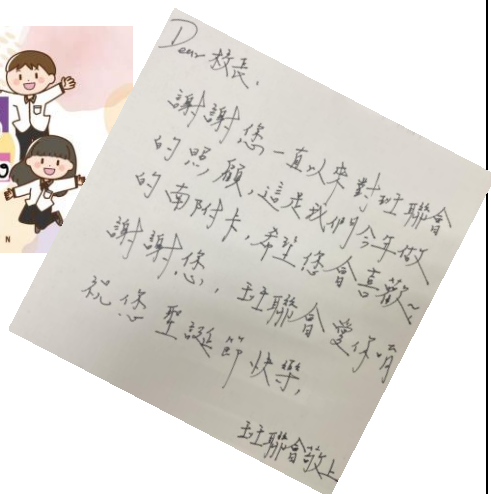 Dear 校長,
謝謝您一直以來對班聯會
的照顧,這是我們今年做
的南附卡,希望您會喜歡~
謝謝您, 班聯會愛你唷
祝您聖誕節快樂,
班聯會敬上
N